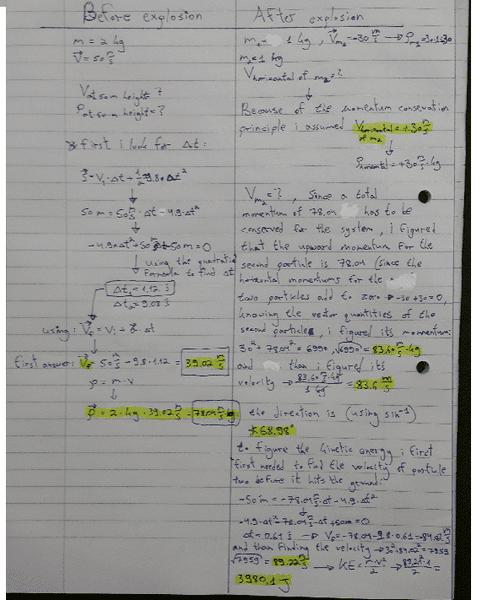 Before explosion
m = 2 kg
V = 50 m/s
V at 50 m height = ?
P at 50 m height = ?
first i look for Δt:
50 m = 50 m/s · Δt - 4.9 Δt²
↓
-4.9 Δt² + 50 Δt - 50 m = 0
using the quadratic
formula to find Δt
Δt₁ = 1.12 s
Δt₂ = 9.08 s
using:
First answer: 50 m/s - 9.8 · 1.12 = 39.02 m/s
p = m · v
↓
p = 2 · kg · 39.02 m/s = 78.04
After explosion
1 kg, V = -30 m/s
1 kg
V horizontal of m₂ = ?
↓
Because of the momentum conservation
principle i assumed V horizontal = +30 m/s of m₂
↓
P horizontal = +30 m/s · kg
V m₂ = ?, since a total
momentum of 78.04 has to be
conserved for the system, i figured
that the upward momentum for the
second particle is 78.04 (since the
horizontal momentums for the
two particles add to zero → -30 + 30 = 0,
knowing the vector quantities of the
second particle, i figured its momentum:
30² + 78.04² = 6990, √6990 = 83.60 m/s · kg
and than i figured its
velocity → = 83.6 m/s
the direction is (using sin⁻¹)
68.98°
to figure the kinetic energy i first
first needed to find the velocity of particle
two before it hits the ground:
-50 m = -78.04 m/s · Δt - 4.9 · Δt²
↓
-4.9 · Δt² - 78.04 m/s · Δt + 50 m = 0
Δt = 0.61 s → -78.04 - 9.8 · 0.61 = -84.02 m/s
and than finding the velocity → 30² + 84.02² = 7959
√7959 = 89.22 m/s → KE = m·v²/2 → 89.22² · 1/2 =
3980.1 J